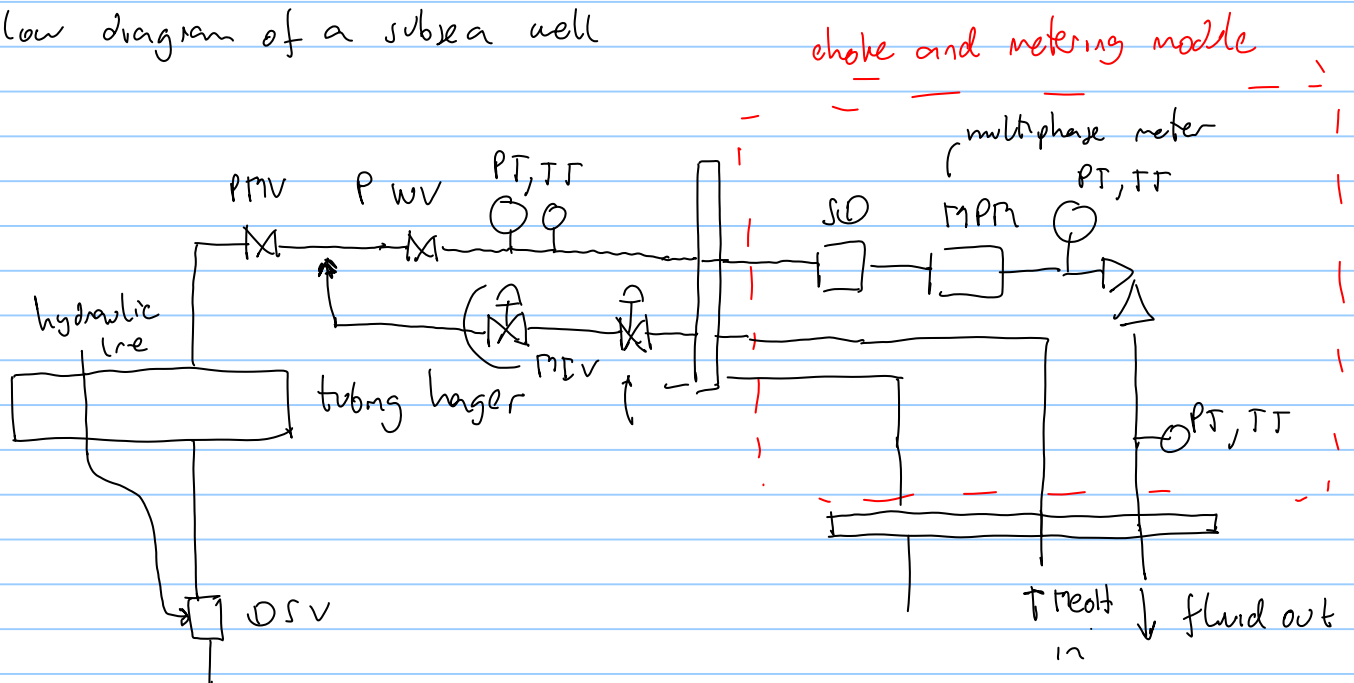 low diagram of a subsea well
choke and metering module
multiphase meter
PT, TT
PT, TT
PMV
PWV
SD
MPM
hydraulic
line
MIV
tubing hager
PT, TT
DSV
MeOH
in
fluid out